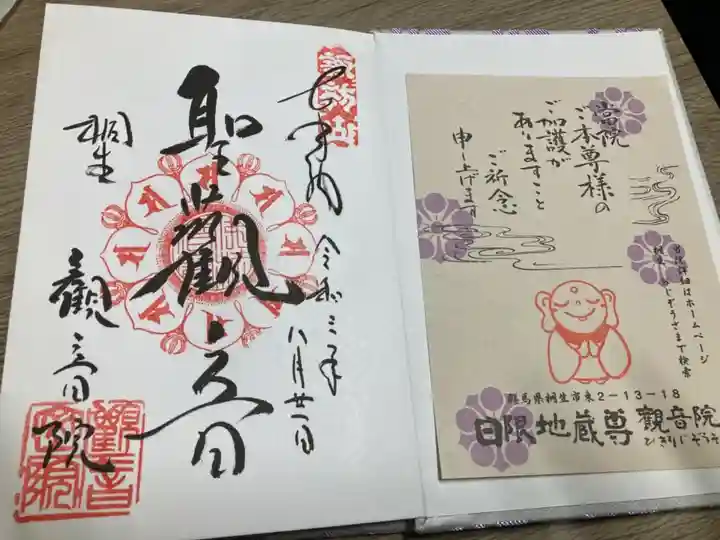 奉拝
令和三年
八月廿一日
聖觀音
桐生
觀音院
觀音
密院
當院
ご本尊様の
ご加護が
ありますこと
ご祈念
申し上げます
※詳細はホームページ
群馬県桐生市東2-13-18
日限地蔵尊 觀音院
ひぎりじぞうそ